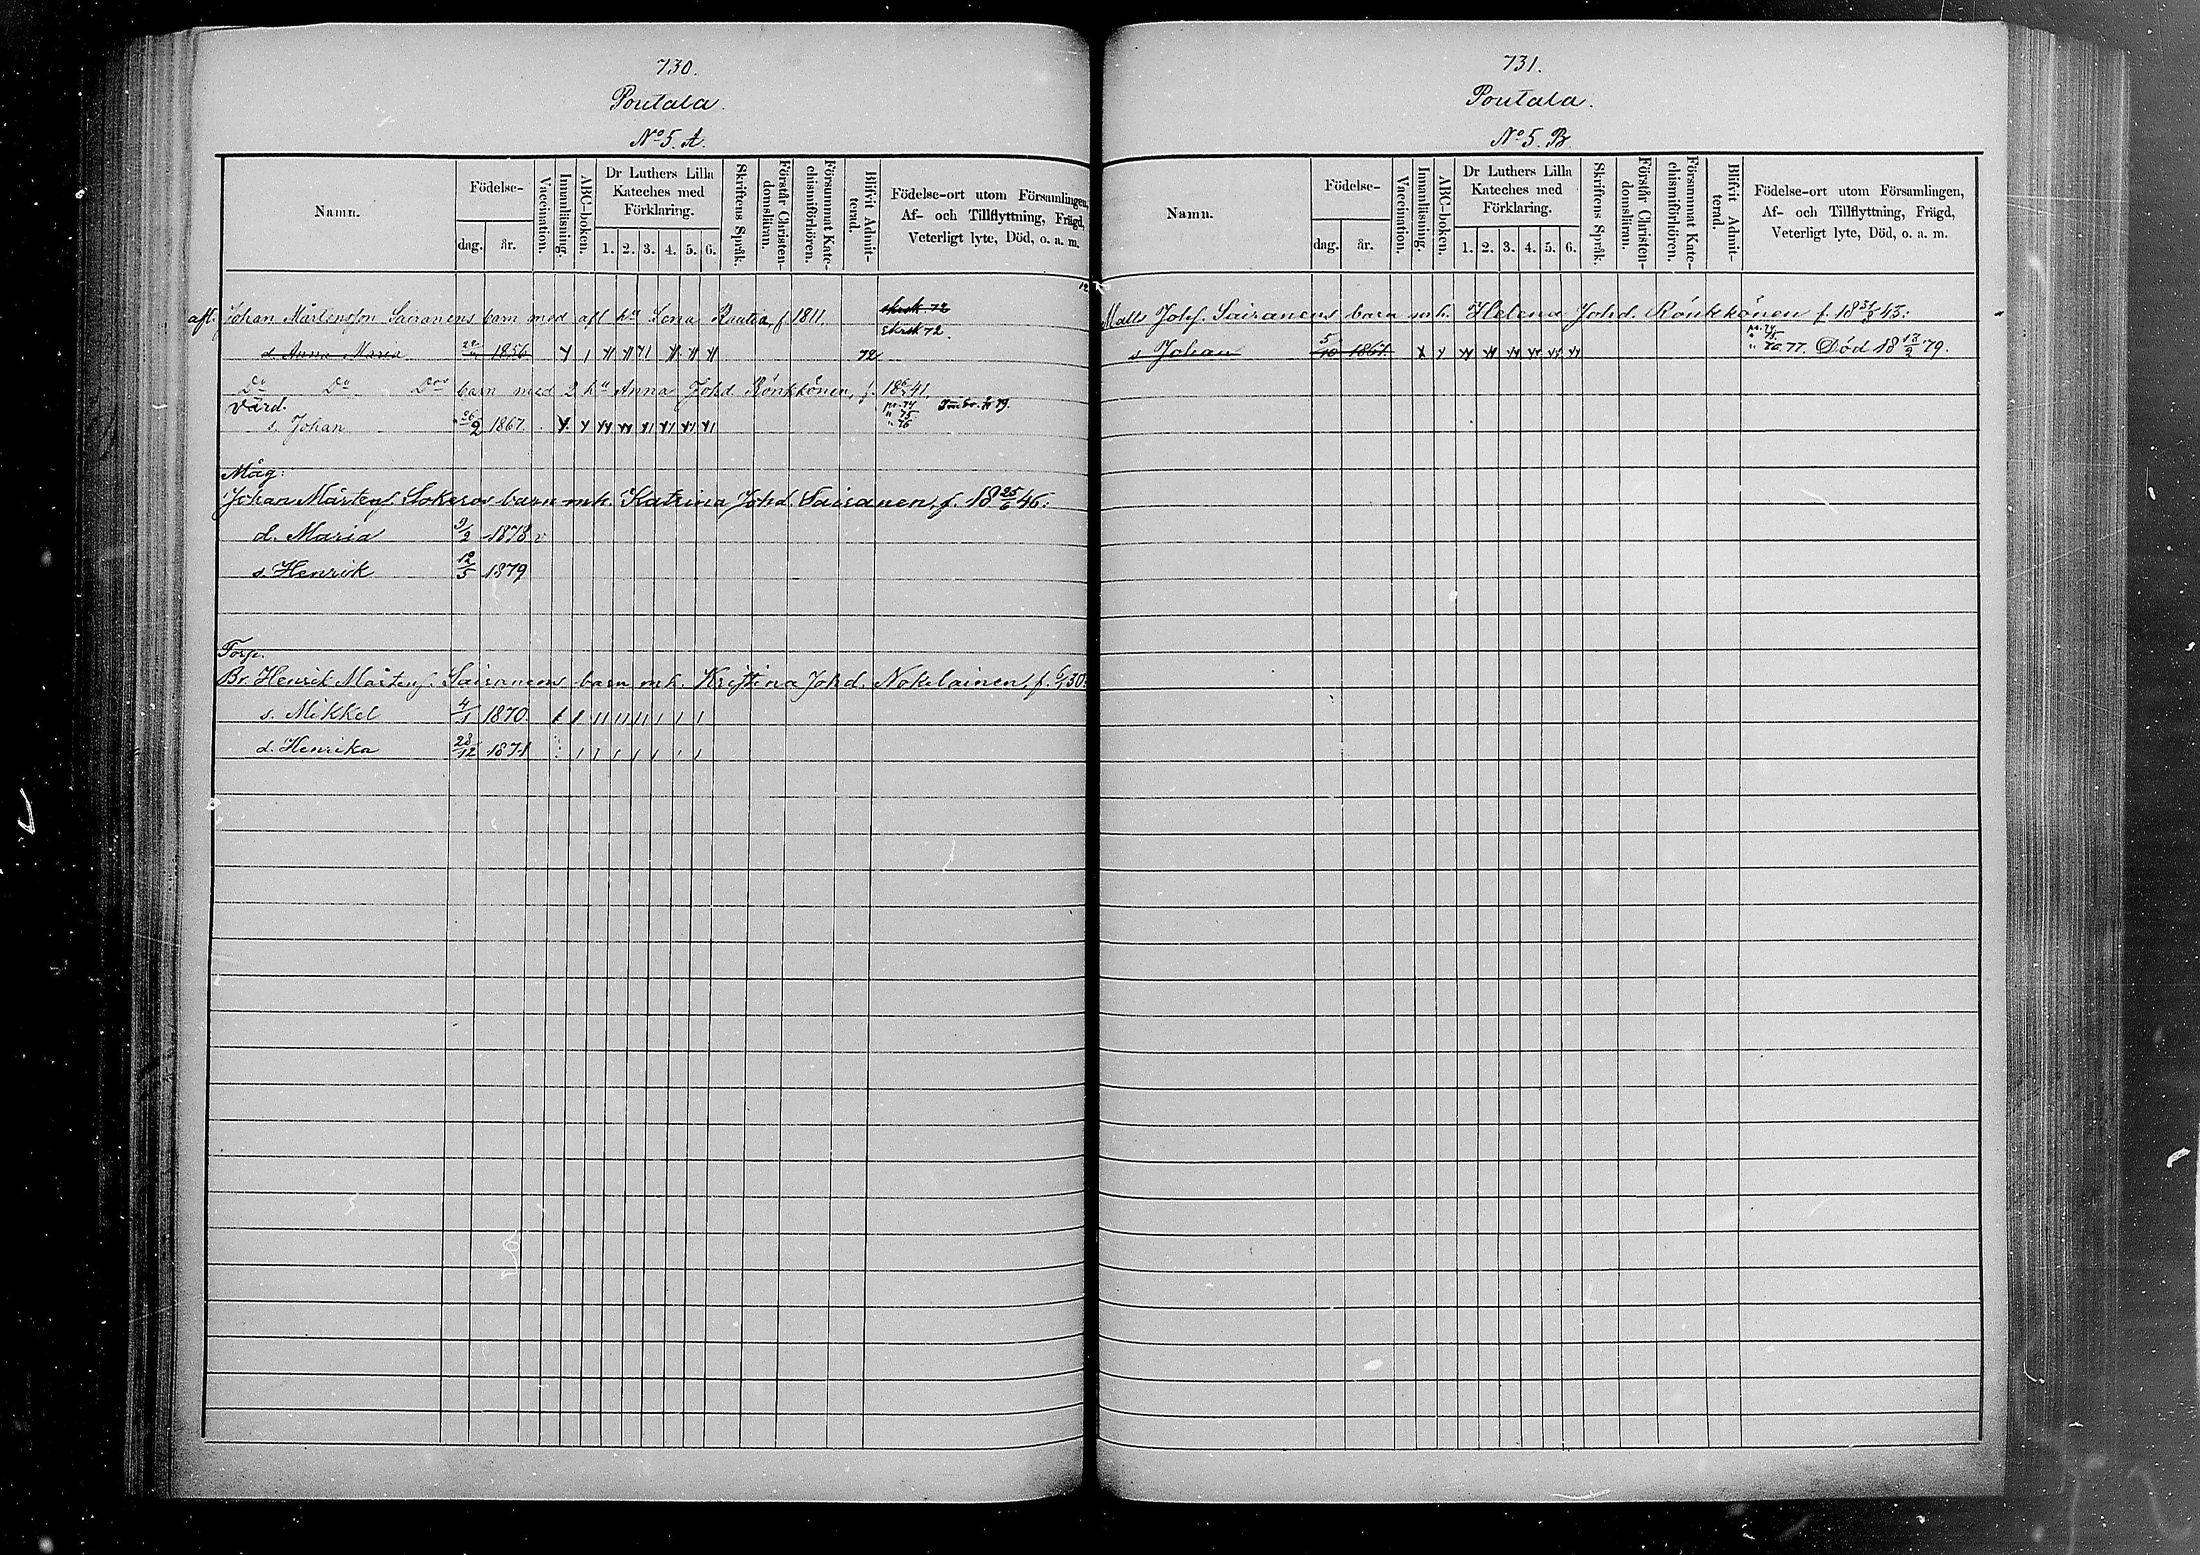 730.
Poutala.
No 5. A.
Namn.
Födelse-
dag.
år.
Vaccination.
Innanläsning.
ABC-boken.
Dr Luthers Lilla Kateches med Förklaring.
1. 2. 3. 4. 5. 6.
Skriftens Språk.
Förstår Christendomsläran.
Försummat Katechismiförhören.
Blifvit Admitterad.
Födelse-ort utom Församlingen,
Af- och Tillflyttning, Frägd,
Veterligt lyte, Död, o. a. m.
afl. Johan Mårtensson Sairanens barn med afl. hu Lena Rautia, f 1811.
Skrek 72.
d. Anna Maria 1856 72
Do Do Dos barn med 2 hu Anna Johd Rönkkönen, f. 41.
värd.
s. Johan 26/2 1867. 75 76
Måg:
Johan Mårtens. Sokeros barn mh. Katrina Johd. Sairanen, f. 18 25/6 46:
d. Maria 9/2 1878 v
s Henrik 12/5 1879
Torp.
Br. Henrik Mårtens. Sairanens barn mh. Kristina Johd. Nokelainen, f. 30:
s. Mikkel 4/1 1870.
d. Henrika 23/12 1871
731.
Poutala.
No 5. B.
Namn.
Födelse-
dag.
år.
Vaccination.
Innanläsning.
ABC-boken.
Dr Luthers Lilla Kateches med Förklaring.
1. 2. 3. 4. 5. 6.
Skriftens Språk.
Förstår Christendomsläran.
Försummat Katechismiförhören.
Blifvit Admitterad.
Födelse-ort utom Församlingen,
Af- och Tillflyttning, Frägd,
Veterligt lyte, Död, o. a. m.
Matts Johs. Sairanens barn mh. Helena Johd. Rönkkönen f. 18 31/5 43:
s Johan 5/10 1867. 76. 77. Död 18 13/2 79.